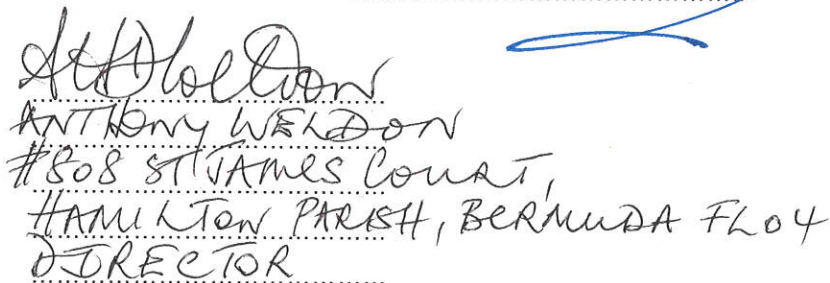 ANTHONY WELDON
#808 ST JAMES COURT,
HAMILTON PARISH, BERMUDA FL04
DIRECTOR